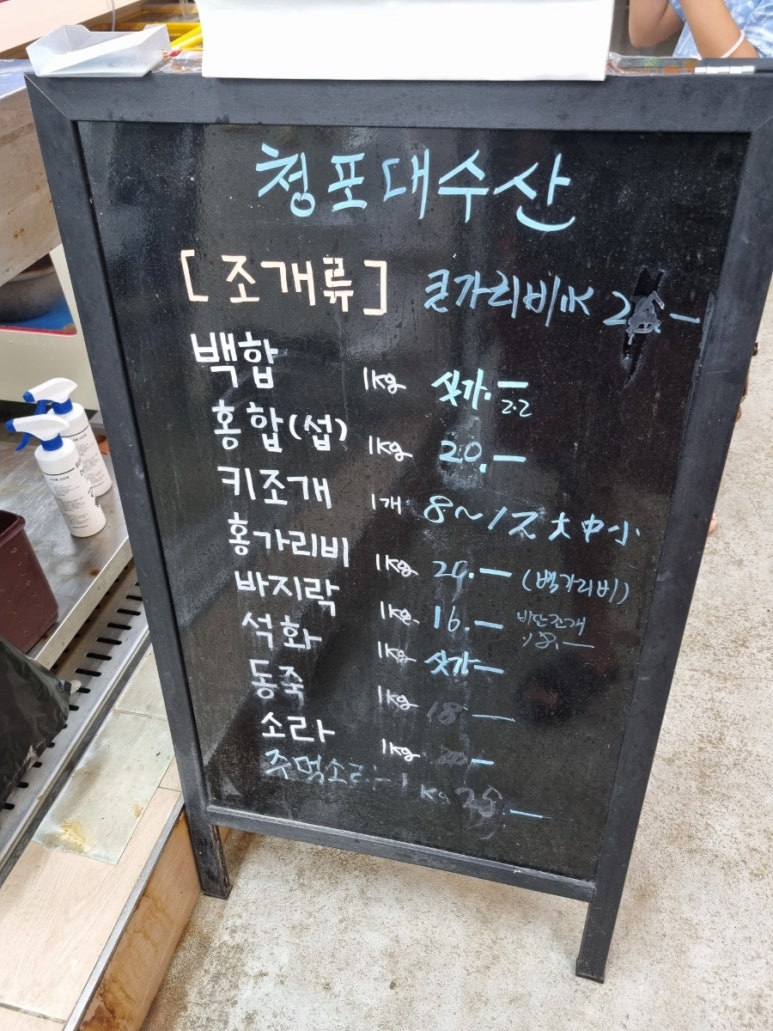 청포대수산
[조개류] 큰가리비 1K 2
백합 1kg 싯가.— 2.2
홍합(섭) 1kg 20.—
키조개 1개 8~1 大中小
홍가리비 1kg 20.— (백가리비)
바지락 1kg 16.— 비단조개 18.—
석화 1kg 싯가—
동죽 1kg 18.—
소라 1kg 20.—
주먹소라 1kg 25.—